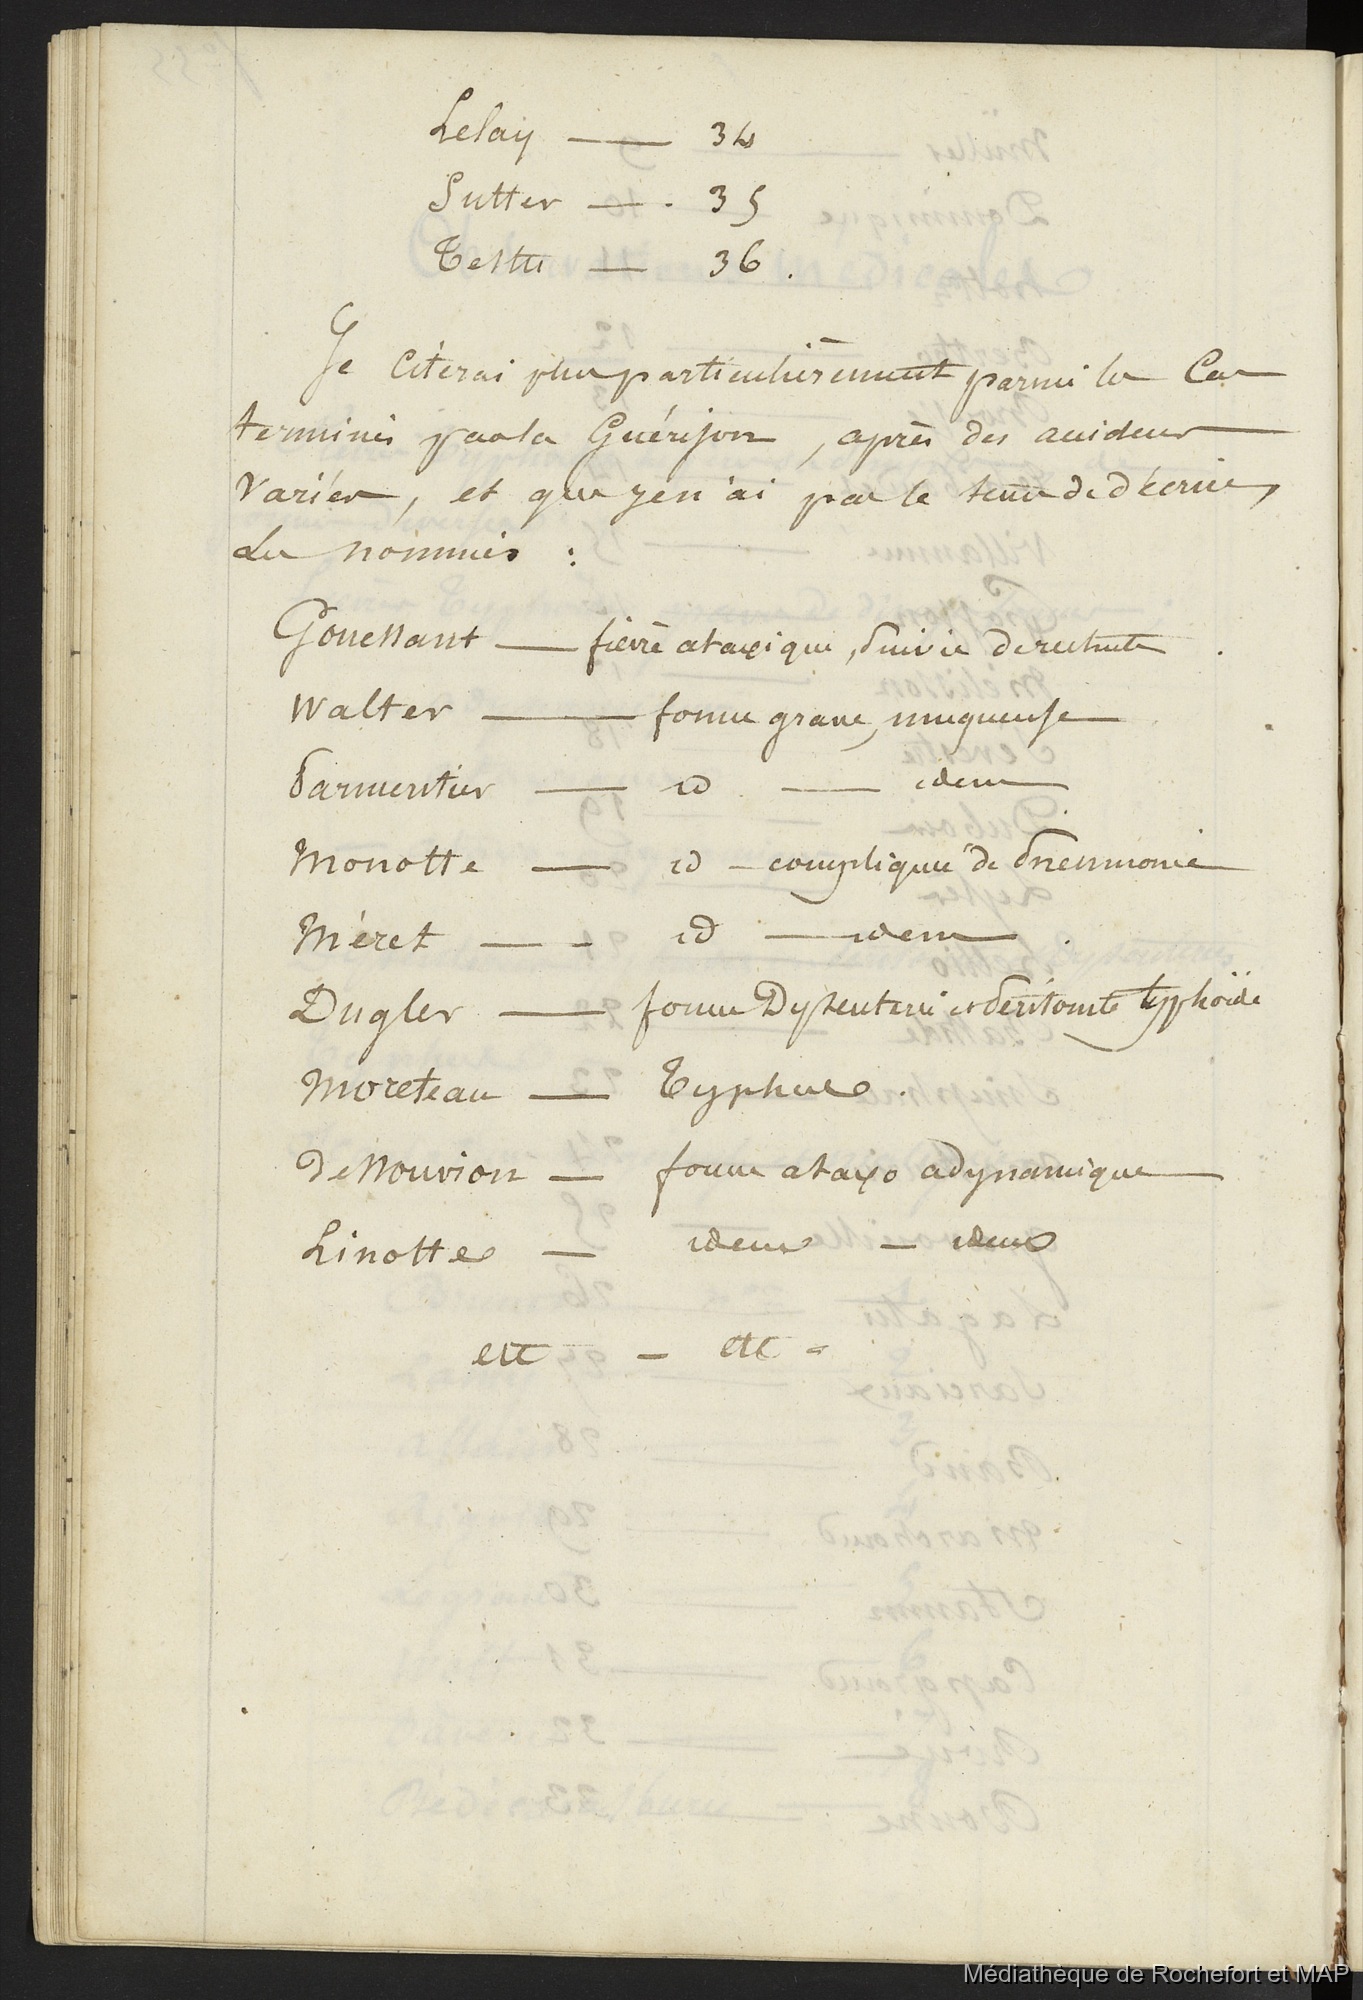 Lelay — 34
Sutter — 35
Testu — 36.
Je citerai plus particulièrement parmi les Cas
terminés par la Guérison, après des accidents
Variés, et que je n'ai pas le tems de décrire,
Les nommés :
Gouessant — fièvre ataxique, Suivie de rechute.
Walter — forme grave, muqueuse
Parmentier — id — idem
Monotte — id — compliquée de Pneumonie
Méret — id — idem.
Dugler — forme Dysenterie et Péritonite typhoïde
Moreteau — Typhus.
De Nouvion — forme ataxo adynamique
Linotte — idem — idem
etc — etc —
Médiathèque de Rochefort et MAP